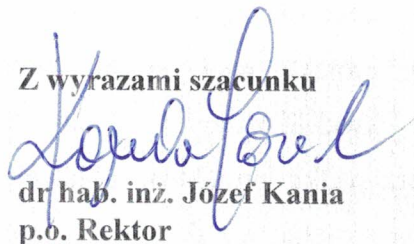 Z wyrazami szacunku
Kania Józef
dr hab. inż. Józef Kania
p.o. Rektor